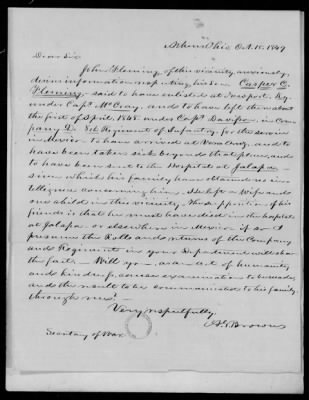 Athens Ohio Oct. 15. 1849
Dear Sir
John Fleming of this vicinity anxiously
desires information respecting his son Casper C.
Fleming said to have enlisted at Newport, Ky.
under Capt. McCray, and to have left there about
the first of April, 1848 under Capt. Davison in Com-
pany D. 8th Regiment of Infantry for the service
in Mexico to have arrived at Vera Cruz, and to
have been taken sick beyond that place, and
to have been sent to the Hospital at Jalapa
since which his family have obtained no in-
telligence concerning him. He left a Wife and
one child in this vicinity. The supposition of his
friends is that he must have died in the hospital
at Jalapa or elsewhere in Mexico if so I
presume the Rolls and returns of the Company
and Regiment in your Department will show
the fact. Will you, as an act of humanity
and kindness, cause examination to be made
and the result to be communicated to his family
through me?
Very respectfully
Secretary of War Brown